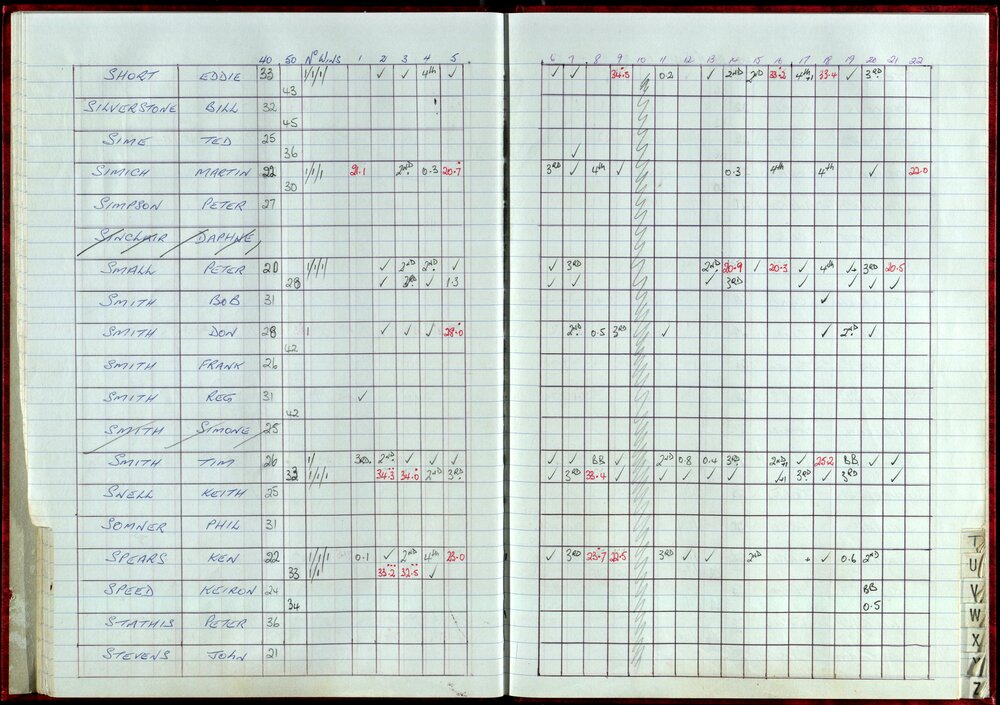 40 50 Nº WINS 1 2 3 4 5 6 7 8 9 10 11 12 13 14 15 16 17 18 19 20 21 22
SHORT EDDIE 33 /// ✓ ✓ 4th ✓ ✓ ✓ 34.5 0.2 ✓ 2ND 2ND 33.2 4th 33.4 ✓ 3RD
43
SILVERSTONE BILL 32
45
SIME TED 25
36 ✓
SIMICH MARTIN 22 /// 21.1 2ND 0.3 20.7 3RD ✓ 4th ✓ 0.3 4th 4th ✓ 22.0
30
SIMPSON PETER 27
SINCLAIR DAPHNE
SMALL PETER 20 /// ✓ 2ND 2ND ✓ ✓ 3RD 2ND 20.9 ✓ 20.3 ✓ 4th ✓ 3RD 20.5
28 ✓ 3RD ✓ 1.3 ✓ ✓ ✓ 3RD ✓ ✓ ✓ ✓
SMITH BOB 31 ✓
SMITH DON 28 / ✓ ✓ ✓ 28.0 2ND 0.5 3RD ✓ ✓ 2ND ✓
42
SMITH FRANK 26
SMITH REG 31 ✓
42
SMITH SIMONE 25
SMITH TIM 26 / 3RD 2ND ✓ ✓ ✓ ✓ ✓ BB ✓ 2ND 0.8 0.4 3RD 2ND 25.2 BB ✓ ✓
32 /// 34.3 34.0 2ND 3RD ✓ 3RD 33.4 ✓ ✓ ✓ ✓ ✓ 3RD ✓ 3RD ✓
SNELL KEITH 25
SOMNER PHIL 31
SPEARS KEN 22 /// 0.1 ✓ 2ND 4th 23.0 ✓ 3RD 23.7 22.5 3RD ✓ ✓ 2ND ✓ 0.6 2ND
33 // 33.2 32.5 ✓
SPEED KEIRON 24 BB
34 0.5
STATHIS PETER 36
STEVENS JOHN 21
T
U
V
W
X
Y
Z